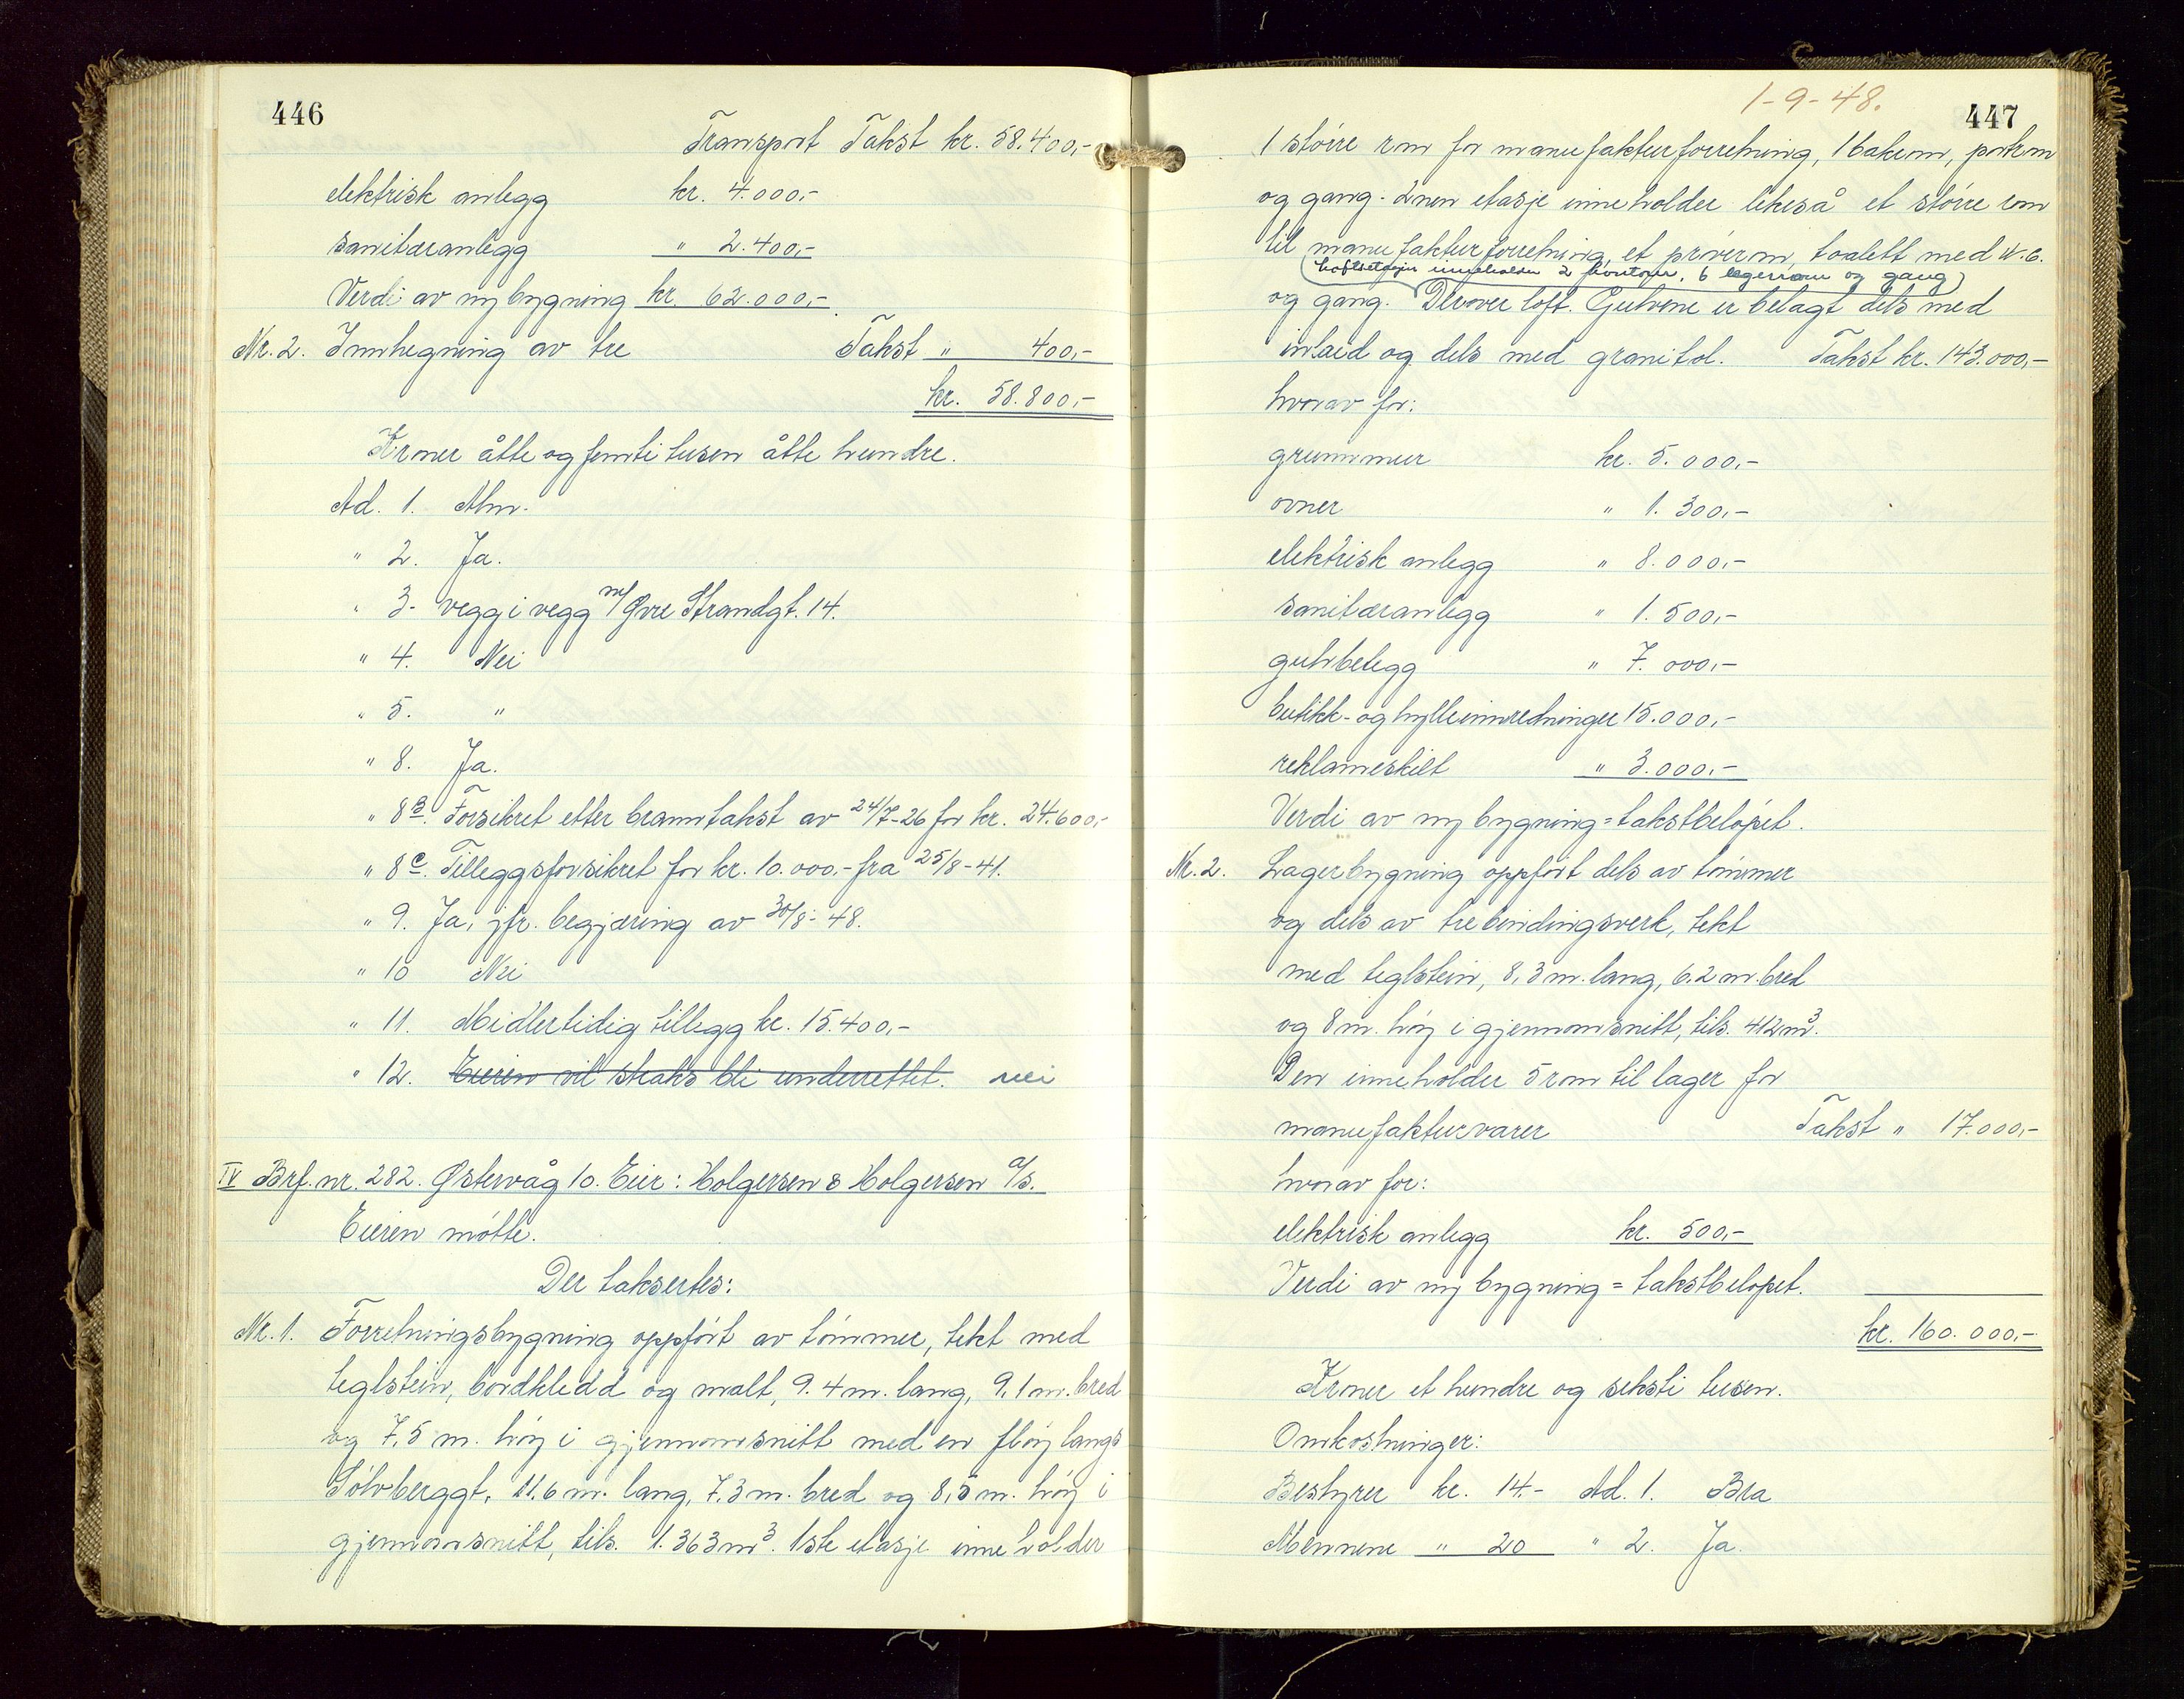 446
Transport Takst kr. 58.400,-
elektrisk anlegg kr. 4.000,-
sanitæranlegg " 2.400,-
Verdi av ny bygning kr. 62.000,-.
Nr. 2. Innhegning av tre Takst " 400,-
kr. 58.800,-
Kroner åtte og femti tusen åtte hundre.
Ad. 1. Alm.
" 2. Ja.
" 3. vegg i vegg m/ Øvre Strandgt. 14.
" 4. Nei
" 5. "
" 8. Ja.
" 8B. Forsikret etter branntakst av 24/7-26 for kr. 24.600,-
" 8C. Tilleggsforsikret for kr. 10.000,- fra 25/8-41.
" 9. Ja, jfr. begjæring av 30/8-48.
" 10 Nei
" 11. Midlertidig tillegg kr. 15.400,-
" 12. Eieren vil straks bli underrettet. nei
IV Brf. nr. 282. Østervåg 10. Eier: Holgersen & Holgersen a/s.
Eieren møtte.
Der taksertes:
Nr. 1. Forretningsbygning oppført av tømmer, tekt med
teglstein, bordkledd og malt, 9.4 m. lang, 9,1 m. bred
og 7,5 m. høy i gjennomsnitt med en fløy langs
Sølvberggt. 11,6 m. lang, 7,3 m. bred og 8,5 m. høy i
gjennomsnitt, tils. 1.363 m³. 1ste etasje inneholder
1-9-48. 447
1 større rom for manufakturforretning, 1 bakrom, pakrom
og gang. 2nen etasje inneholder likeså et større rom
til manufakturforretning, et prøverom, toalett med W.C.
(Loftsetasjen inneholder 2 kontorer, 6 lagerrom og gang)
og gang. Derover loft. Gulvene er belagt dels med
inlaid og dels med granitol. Takst kr. 143.000,-
hvorav for:
grunnmur kr. 5.000,-
ovner " 1.300,-
elektrisk anlegg " 8.000,-
sanitæranlegg " 1.500,-
gulvbelegg " 7.000,-
butikk- og hylleinnredninger 15.000,-
reklameskilt " 3.000,-
Verdi av ny bygning = takstbeløpet.
Nr. 2. Lagerbygning oppført dels av tømmer
og dels av trebindingsverk, tekt
med teglstein, 8,3 m. lang, 6,2 m. bred
og 8 m. høy i gjennomsnitt, tils. 412 m³.
Den inneholder 5 rom til lager for
manufakturvarer Takst " 17.000,-
hvorav for:
elektrisk anlegg kr. 500,-
Verdi av ny bygning = takstbeløpet.
kr. 160.000,-
Kroner et hundre og seksti tusen.
Omkostninger:
Bestyrer kr. 14.- Ad. 1. Bra
Mennene " 20 " 2. Ja.